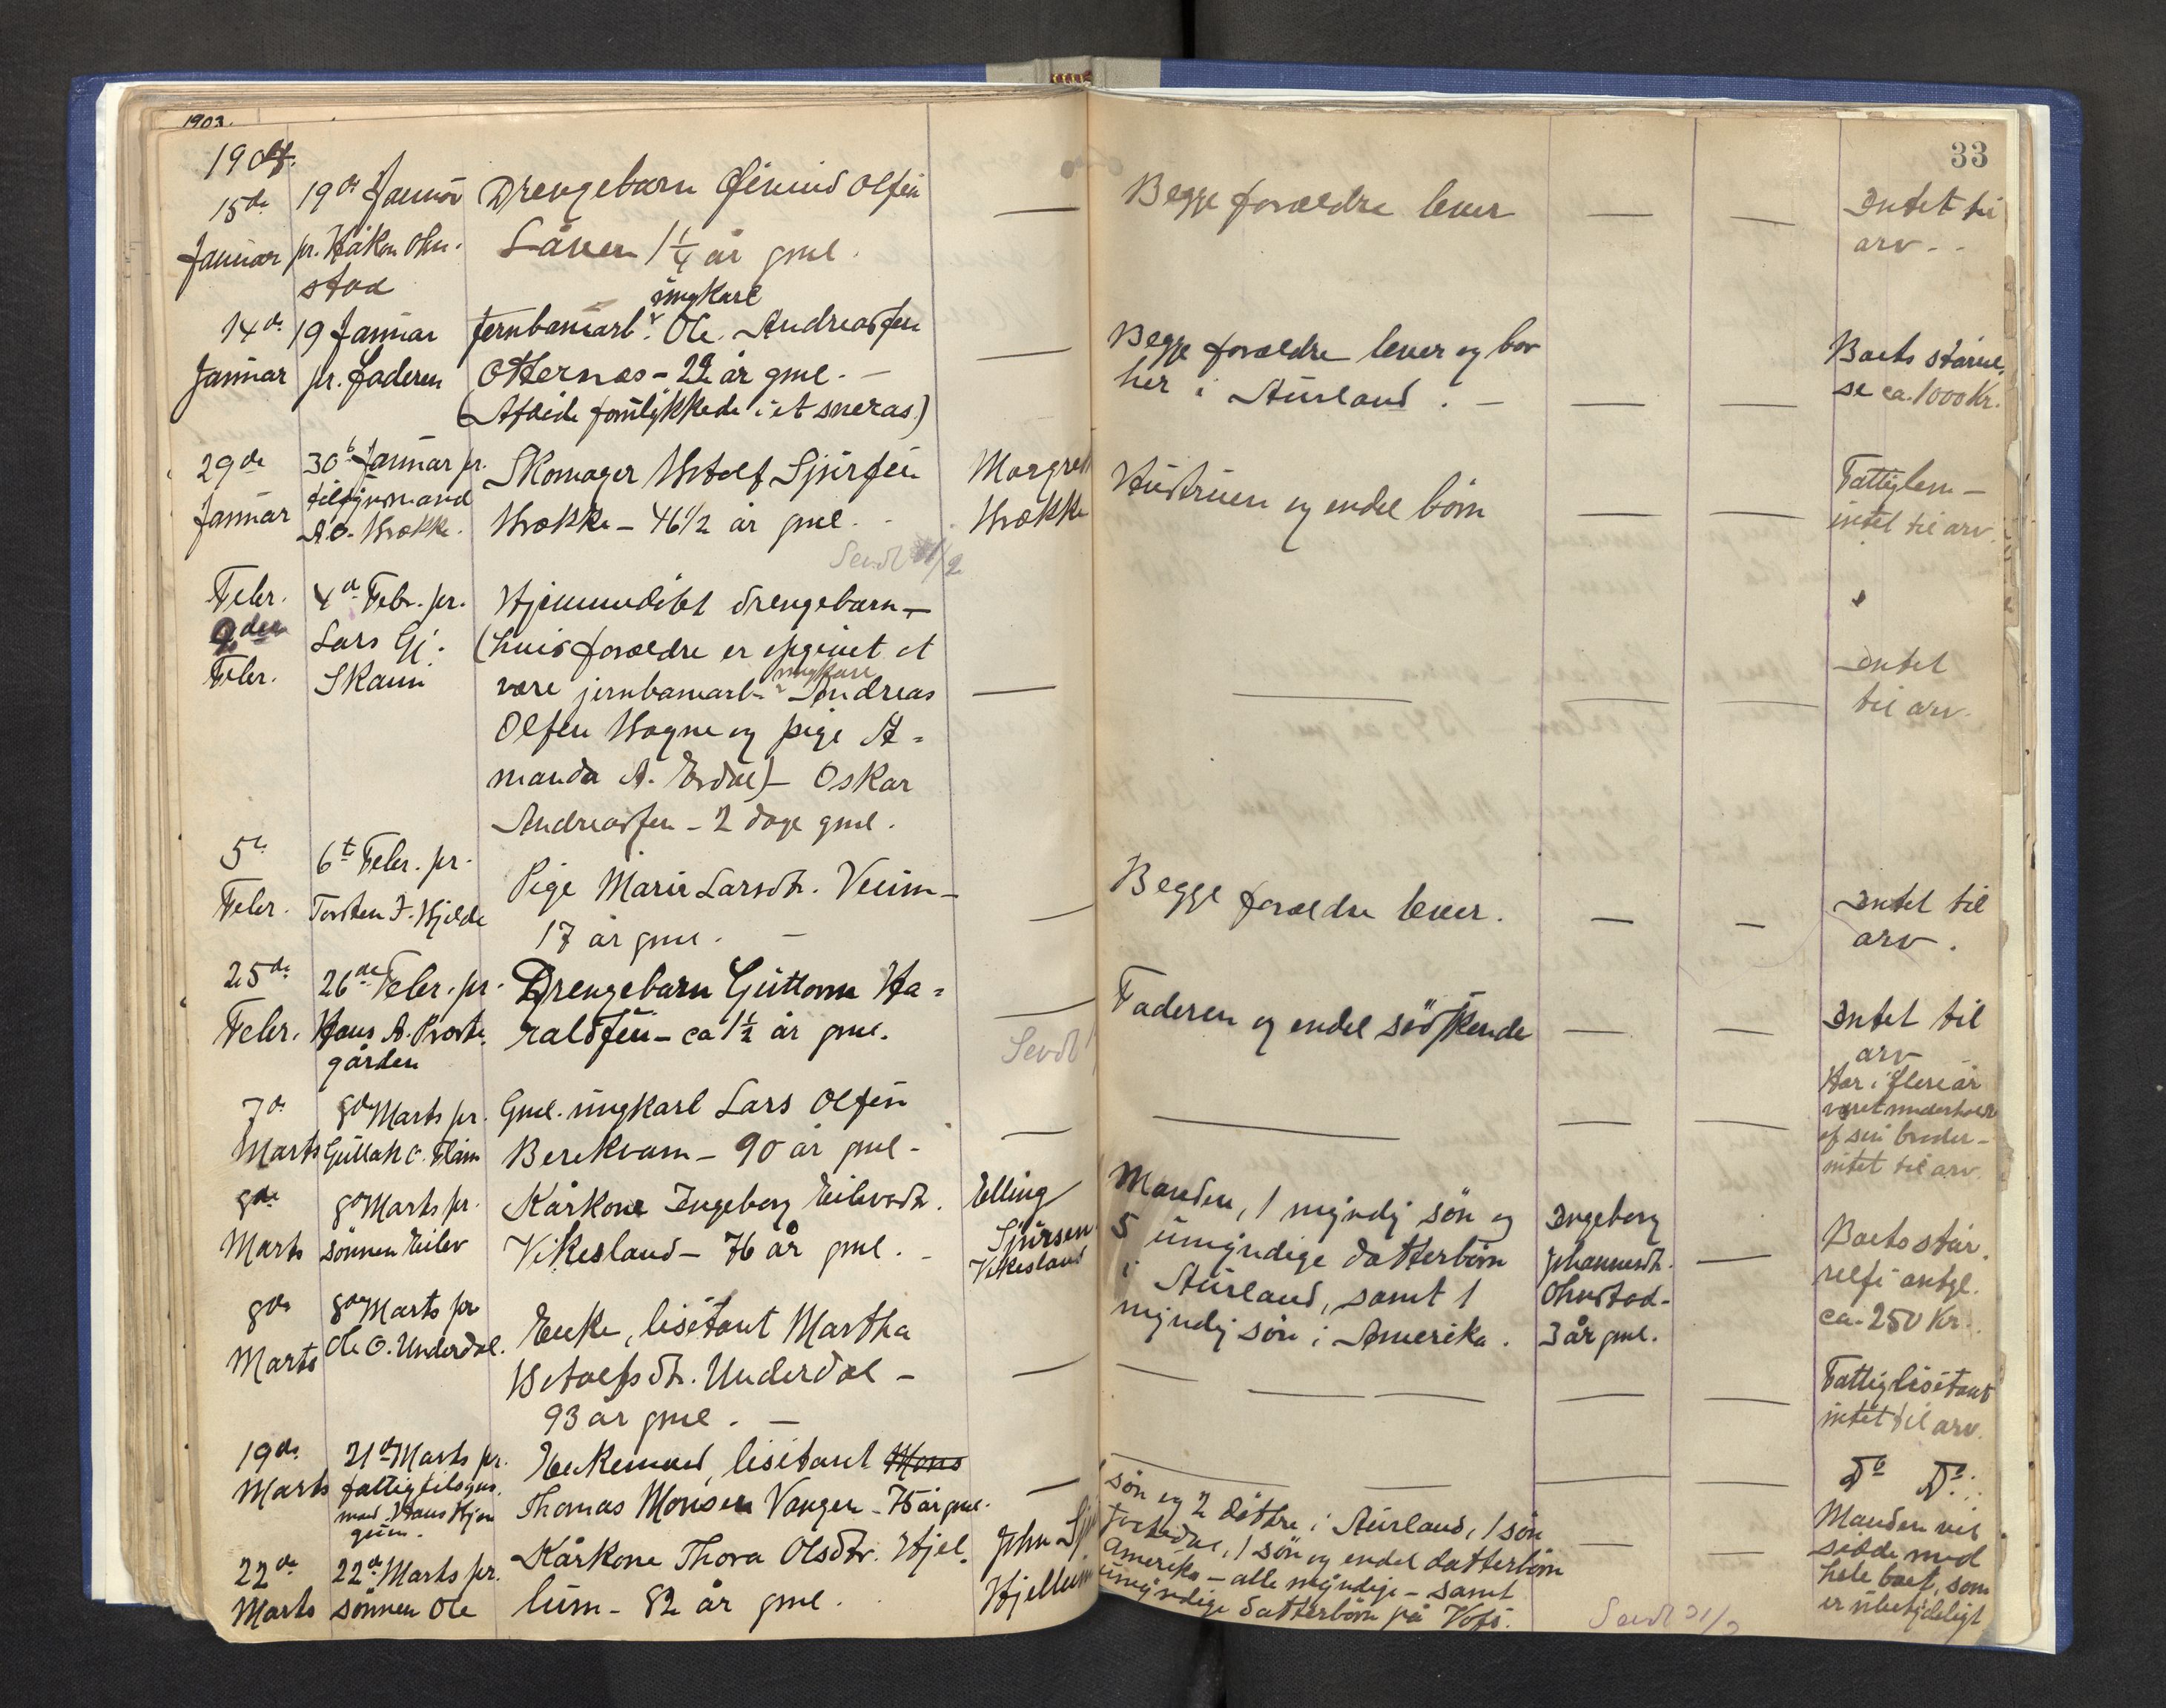 1903.
33
1904.
15de 19de Januar Drengebarn Øivind Olsen — Begge forældre lever — — Intet til
Januar pr. Håkon Ohn- Låven 1 1/4 år gml. arv. -
stad
ungkarl
14de 19 Januar Jernbanearb. Ole Andreassen — Begge forældre lever og bor — — Boets størrel-
Januar pr. Faderen Otternes - 22 år gml. - her i Aurland. - se ca. 1000 Kr.
(Afdøde forulykkede i et sneras.)
29de 30te Januar pr. Skomager Botolf Sjursen Margrethe Hustruen og endel børn — — Fattiglem -
Januar tilsynsmand Brække - 46 1/2 år gml. - Brække intet til arv.
A.O. Brække.
Sendt /2
Febr. 4de Febr. pr. Hjemmedøbt drengebarn -
2den Lars Gj. (hvis forældre er opgivet at
ungkarl
Febr. Skaim være jernbanearb. Andreas — — — — Intet
Olsen Vogne og pige A- til arv.
manda A. Erdal) - Oskar
Andreassen - 2 dage gml.
5te 6te Febr. pr. Pige Marie Larsdtr. Veum - — Begge forældre lever. — — Intet til
Febr. Torsten J. Hjelde 17 år gml. - arv.
25de 26de Febr. pr. Drengebarn Guttorm Ha- — Faderen og endel södskende — — Intet til
Febr. Hans A. Prest- raldsen - ca 1 1/2 år gml. arv
gården
Sendt
7de 8de Marts pr. Gml. ungkarl Lars Olsen — — — — Har i flere år
Marts Gullak O. Flåm Berekvam - 90 år gml. - været underholdt
af sin broder -
intet til arv.
8de 8de Marts pr. Kårkone Ingeborg Eilevsdtr. Elling Manden, 1 myndig søn og Ingeborg — Boets stør-
Marts sønnen Eilev Vikesland - 76 år gml. - Sjursen 5 umyndige datterbørn Johannesdtr. relse antgl.
Vikesland i Aurland, samt 1 Ohnstad - ca. 250 Kr.
myndig søn i Amerika. 3 år gml.
8de 8de Marts pr. Enke, lisitant Martha — — — — Fattiglisitant
Marts Ole O. Underdal. Botolfsdtr. Underdal - intet til arv.
93 år gml. -
19de 21de Marts pr. Enkemand, lisitant Mons — — — — Do Do
Marts fattigtilsyns- Thomas Monsen Vangen - 75 år gml.
mand Hans Hjen
22de 22de Marts pr. Kårkone Thora Olsdtr. Hjel- John søn og 2 døttre i Aurland, 1 søn — — Manden vil
Marts sønnen Ole lum - 82 år gml. Hjellum 1 søn og endel datterbørn sidde med
Amerika - alle myndige - samt hele boet, som
umyndige datterbørn på Voss. er ubetydeligt
Sendt 31/3